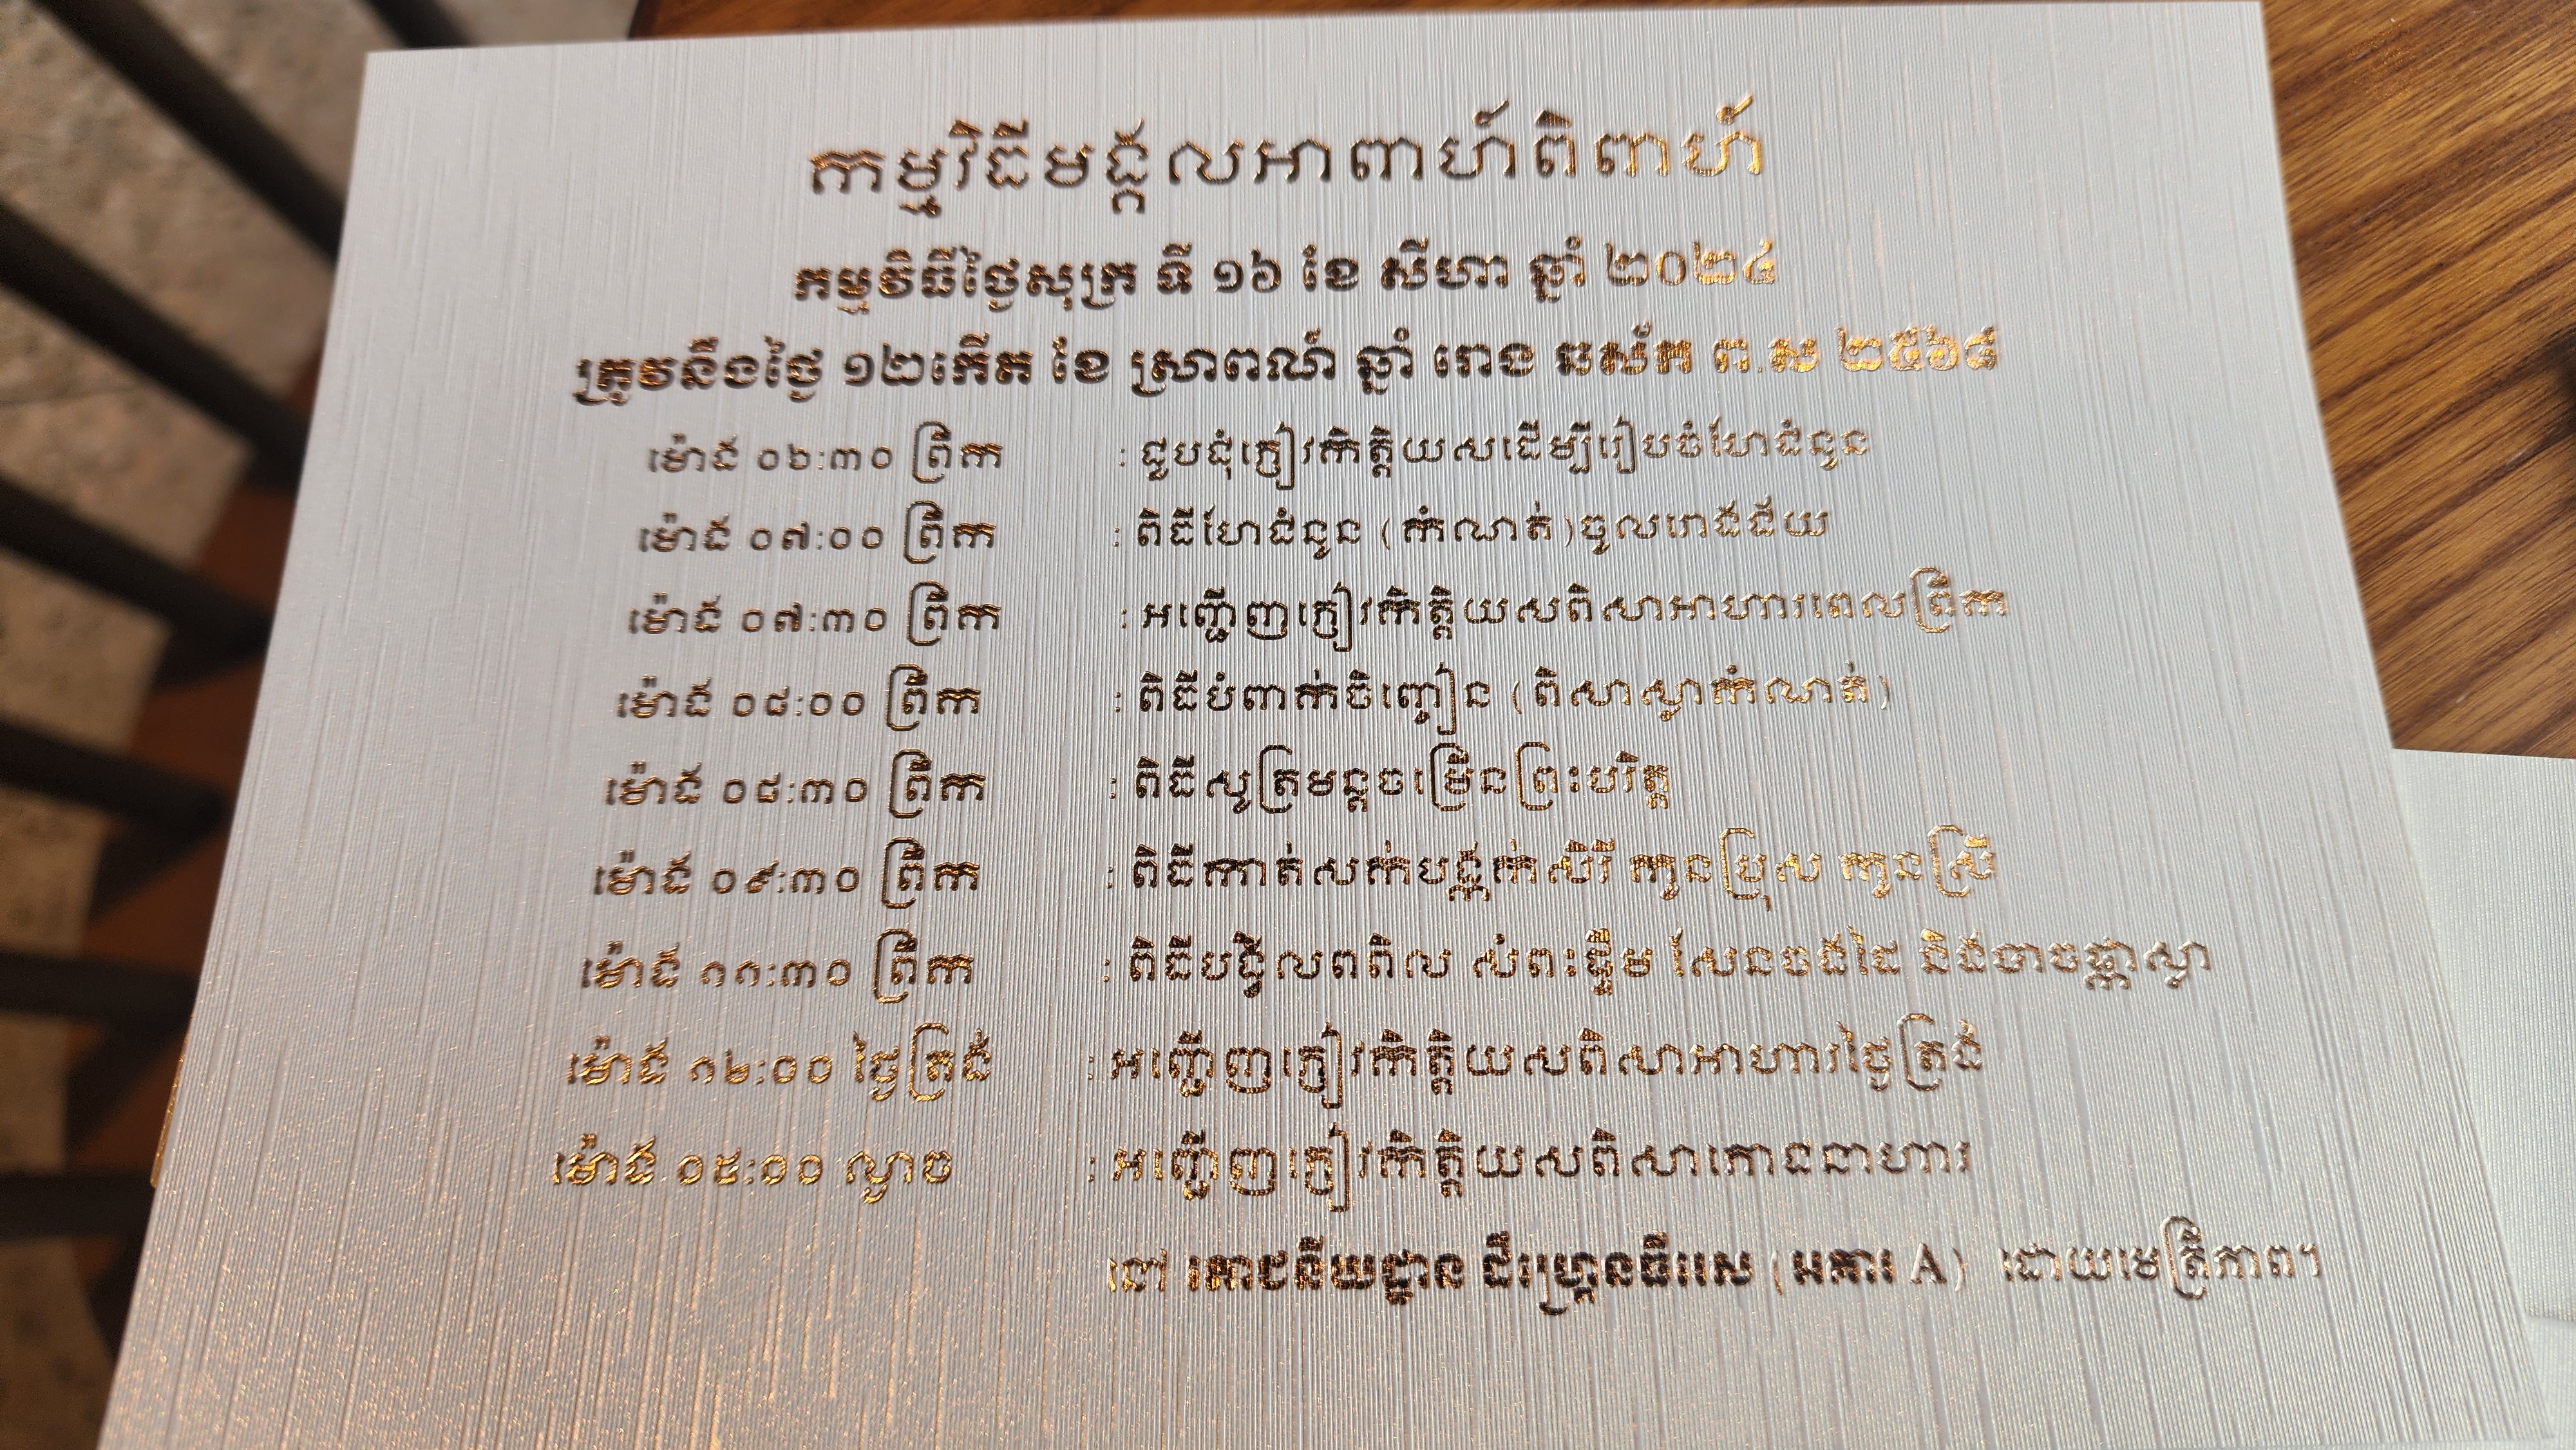 កម្មវិធីមង្គលអាពាហ៍ពិពាហ៍
កម្មវិធីថ្ងៃសុក្រ ទី ១៦ ខែ សីហា ឆ្នាំ ២០២៤
ត្រូវនឹងថ្ងៃ ១២កើត ខែ ស្រាពណ៍ ឆ្នាំ រោង ឆស័ក ព.ស ២៥៦៨
ម៉ោង ០៦:៣០ ព្រឹក : ជួបជុំភ្ញៀវកិត្តិយសដើម្បីរៀបចំហែជំនូន
ម៉ោង ០៧:០០ ព្រឹក : ពិធីហែជំនូន (កំណត់)ចូលរោងជ័យ
ម៉ោង ០៧:៣០ ព្រឹក : អញ្ជើញភ្ញៀវកិត្តិយសពិសាអាហារពេលព្រឹក
ម៉ោង ០៨:០០ ព្រឹក : ពិធីបំពាក់ចិញ្ចៀន (ពិសាស្លាកំណត់)
ម៉ោង ០៨:៣០ ព្រឹក : ពិធីសូត្រមន្តចម្រើនព្រះបរិត្ត
ម៉ោង ០៩:៣០ ព្រឹក : ពិធីកាត់សក់បង្កក់សិរី កូនប្រុស កូនស្រី
ម៉ោង ១១:៣០ ព្រឹក : ពិធីបង្វិលពពិល សំពះផ្ទឹម សែនចងដៃ និងបាចផ្កាស្លា
ម៉ោង ១២:០០ ថ្ងៃត្រង់ : អញ្ជើញភ្ញៀវកិត្តិយសពិសាអាហារថ្ងៃត្រង់
ម៉ោង ០៥:០០ ល្ងាច : អញ្ជើញភ្ញៀវកិត្តិយសពិសាភោជនាហារ
នៅ ភោជនីយដ្ឋាន ដឹហ្រ្គេនធីរេស (អគារ A) ដោយមេត្រីភាព។